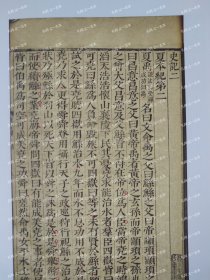 史記二
夏本紀第二
夏禹名曰文命禹之父曰鯀鯀之父曰帝顓頊顓頊之父
曰昌意昌意之父曰黃帝禹者黃帝之玄孫而帝顓頊之孫也禹
之曾大父昌意及父鯀皆不得在帝位爲人臣當帝堯之時鴻水
滔天浩浩懷山襄陵下民其憂堯求能治水者羣臣四嶽皆曰鯀
可堯曰鯀爲人負命毀族不可四嶽曰等之未有賢於鯀者願帝
試之於是堯聽四嶽用鯀治水九年而水不息功用不成於是帝
堯乃求人更得舜舜登用攝行天子之政巡狩行視鯀之治水無
狀乃殛鯀於羽山以死天下皆以舜之誅爲是於是舜舉鯀子禹
而使續鯀之業堯崩帝舜問四嶽曰有能成美堯之事者使居官
皆曰伯禹爲司空可成美堯之功舜曰嗟然命禹女平水土